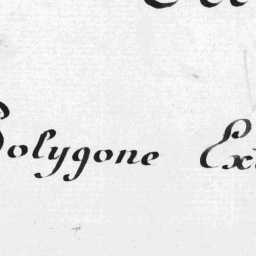 Polygone Ext